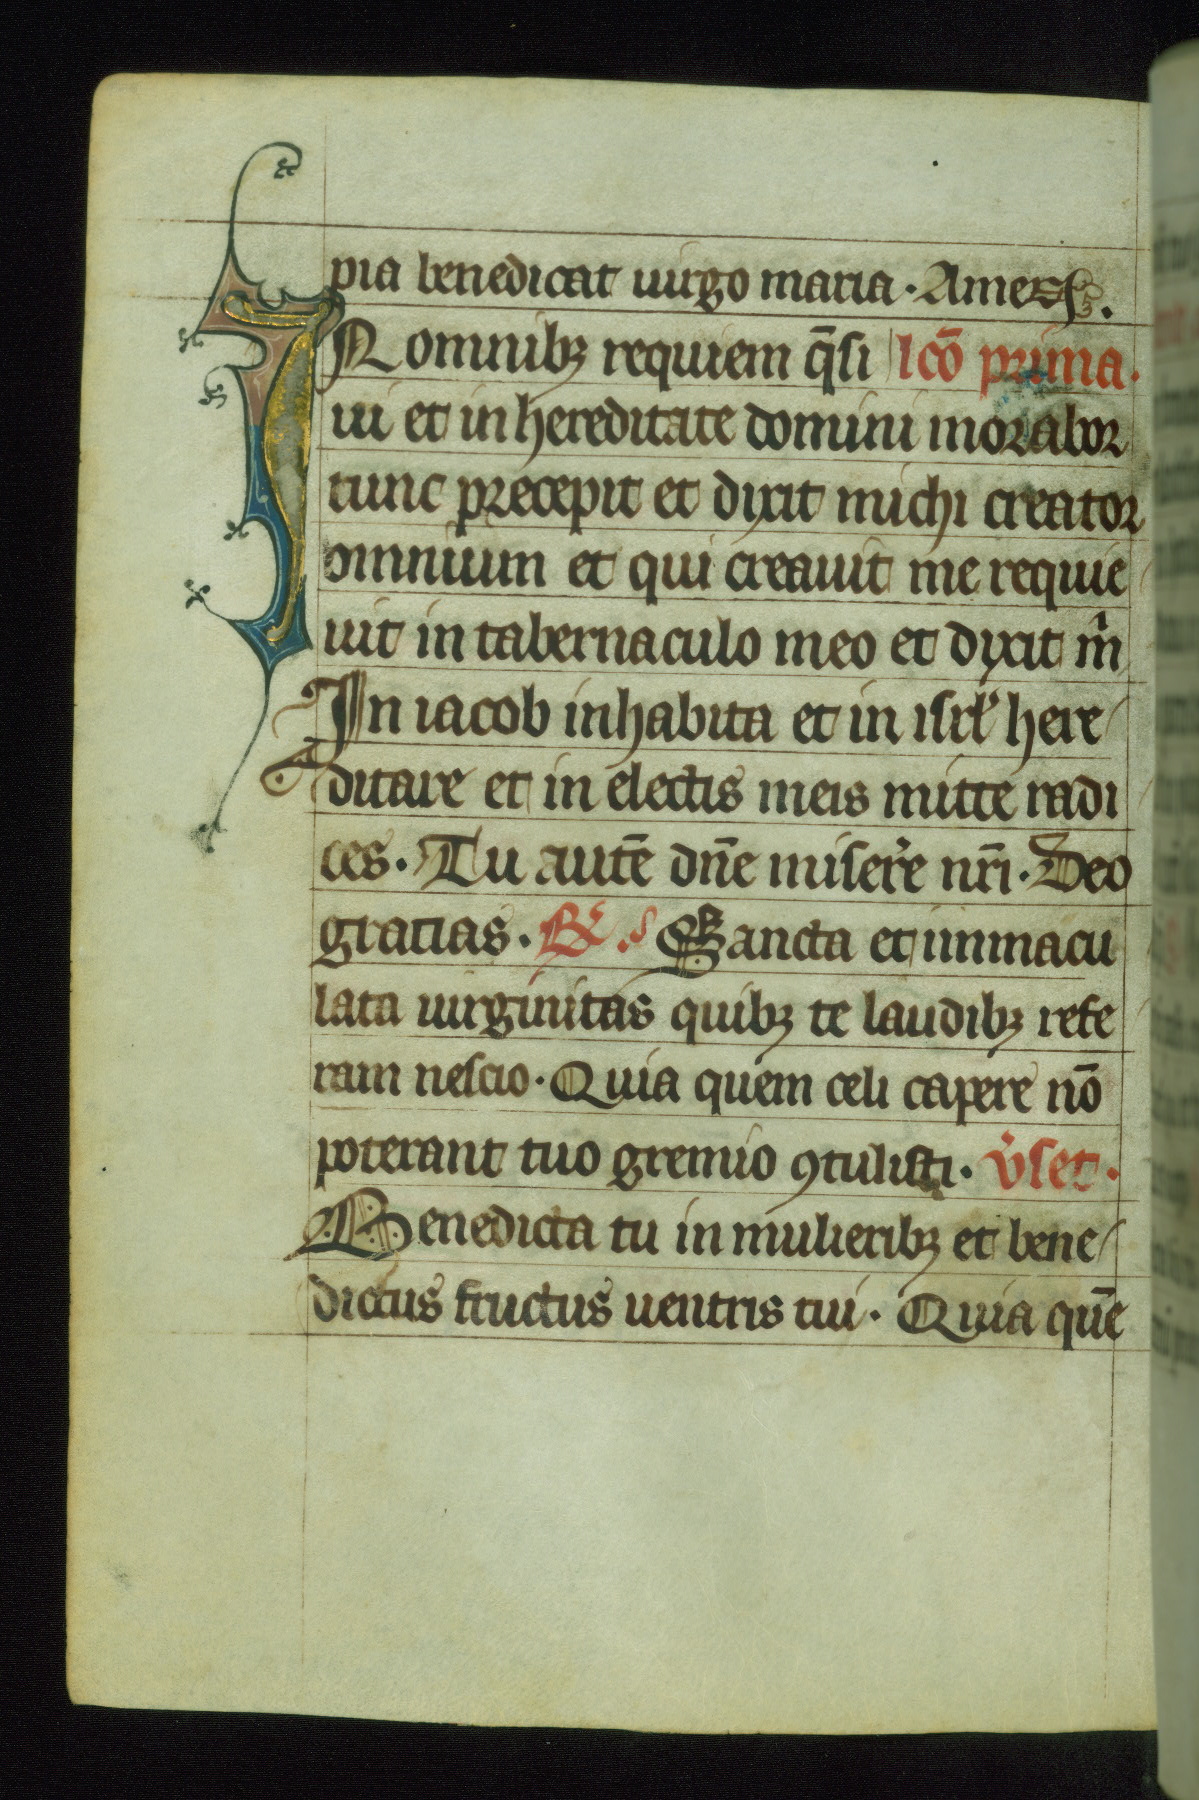 pia benedicat uirgo maria. Amen.
IN omnibꝫ requiem q̄si lcō prima.
ui et in hereditate domini morabor
tunc precepit et dixit michi creator
omnium et qui creauit me requie
uit in tabernaculo meo et dixit m̉
In iacob inhabita et in isrl̉ here
ditare et in electis meis mitte radi
ces. Tu autē dn̄e miser̉e nr̄i. Deo
gracias. ℟. Sancta et inmacu
lata uirginitas quibꝫ te laudibꝫ refe
ram nescio. Quia quem celi capere nō
poterant tuo gremio ꝯtulisti. v̉set.
Benedicta tu in mulieribꝫ et bene
dictus fructus uentris tui. Quia quē